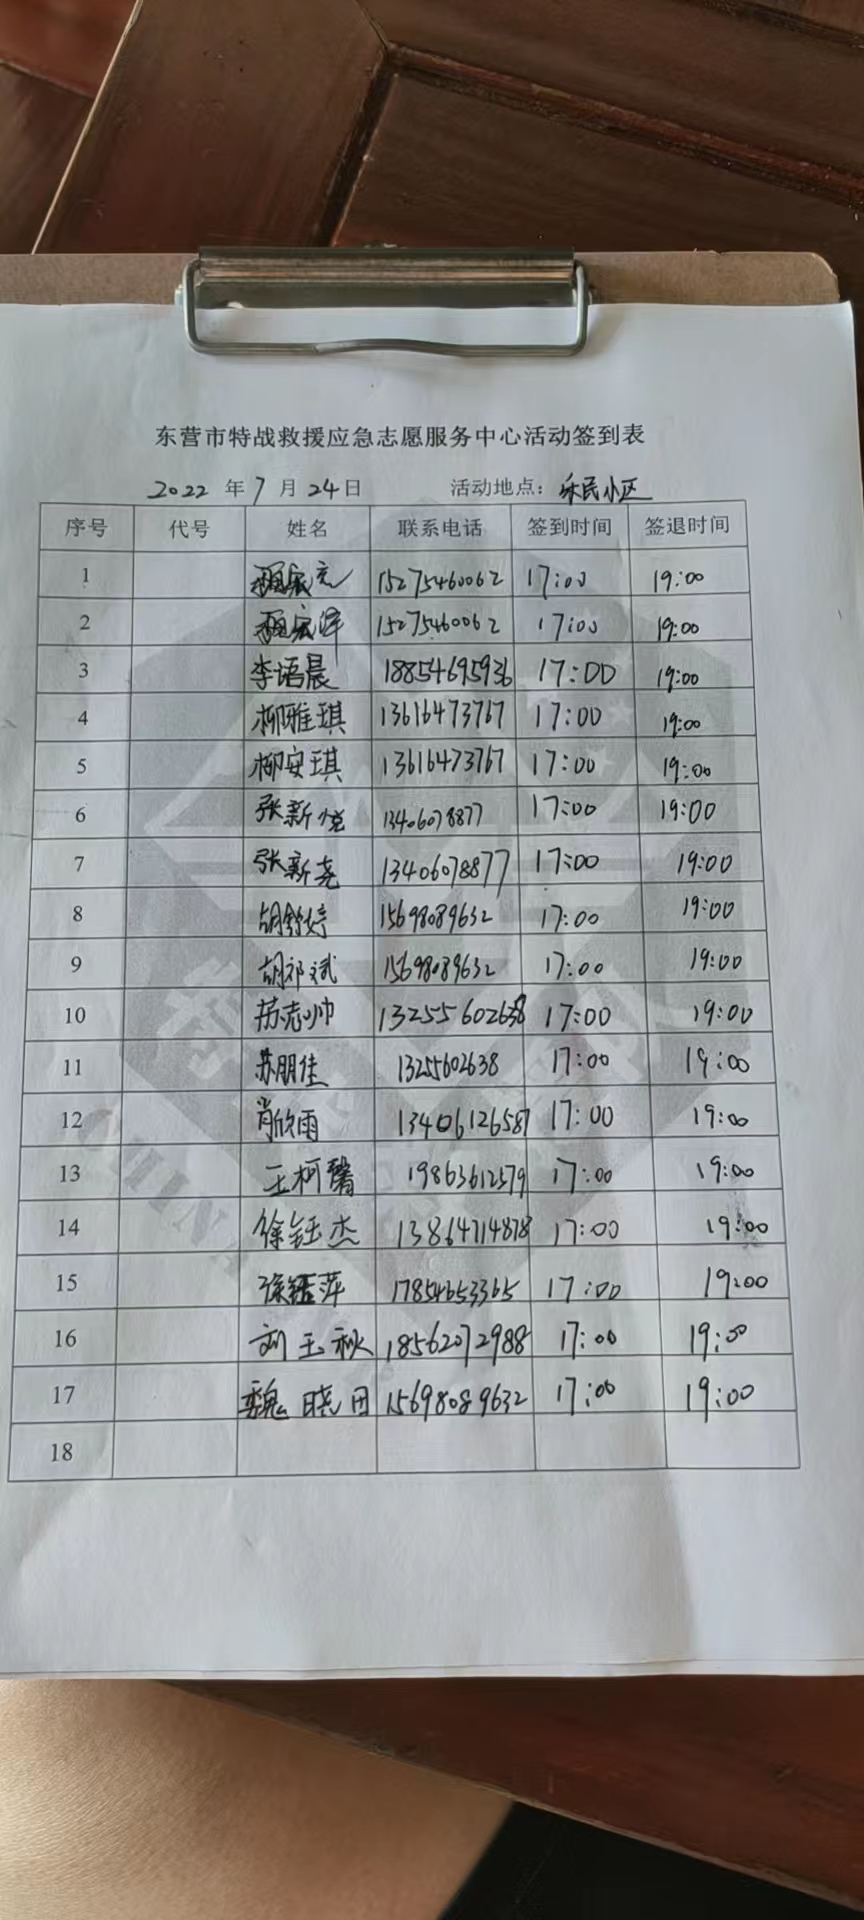 东营市特战救援应急志愿服务中心活动签到表
2022 年 7 月 24 日 活动地点：乐民小区
序号 代号 姓名 联系电话 签到时间 签退时间
1 魏宏元 15275460062 17:00 19:00
2 魏宏泽 15275460062 17:00 19:00
3 李语晨 18854695936 17:00 19:00
4 柳雅琪 13616473767 17:00 19:00
5 柳安琪 13616473767 17:00 19:00
6 张新悦 13406078877 17:00 19:00
7 张新尧 13406078877 17:00 19:00
8 胡舒婷 15698089632 17:00 19:00
9 胡祁斌 15698089632 17:00 19:00
10 苏志帅 13255602638 17:00 19:00
11 苏朋佳 13255602638 17:00 19:00
12 肖欣雨 13406126587 17:00 19:00
13 王柯馨 19863612579 17:00 19:00
14 徐钰杰 13864714878 17:00 19:00
15 徐钰萍 17854653365 17:00 19:00
16 刘玉秋 18562072988 17:00 19:00
17 魏晓田 15698089632 17:00 19:00
18
CHINA